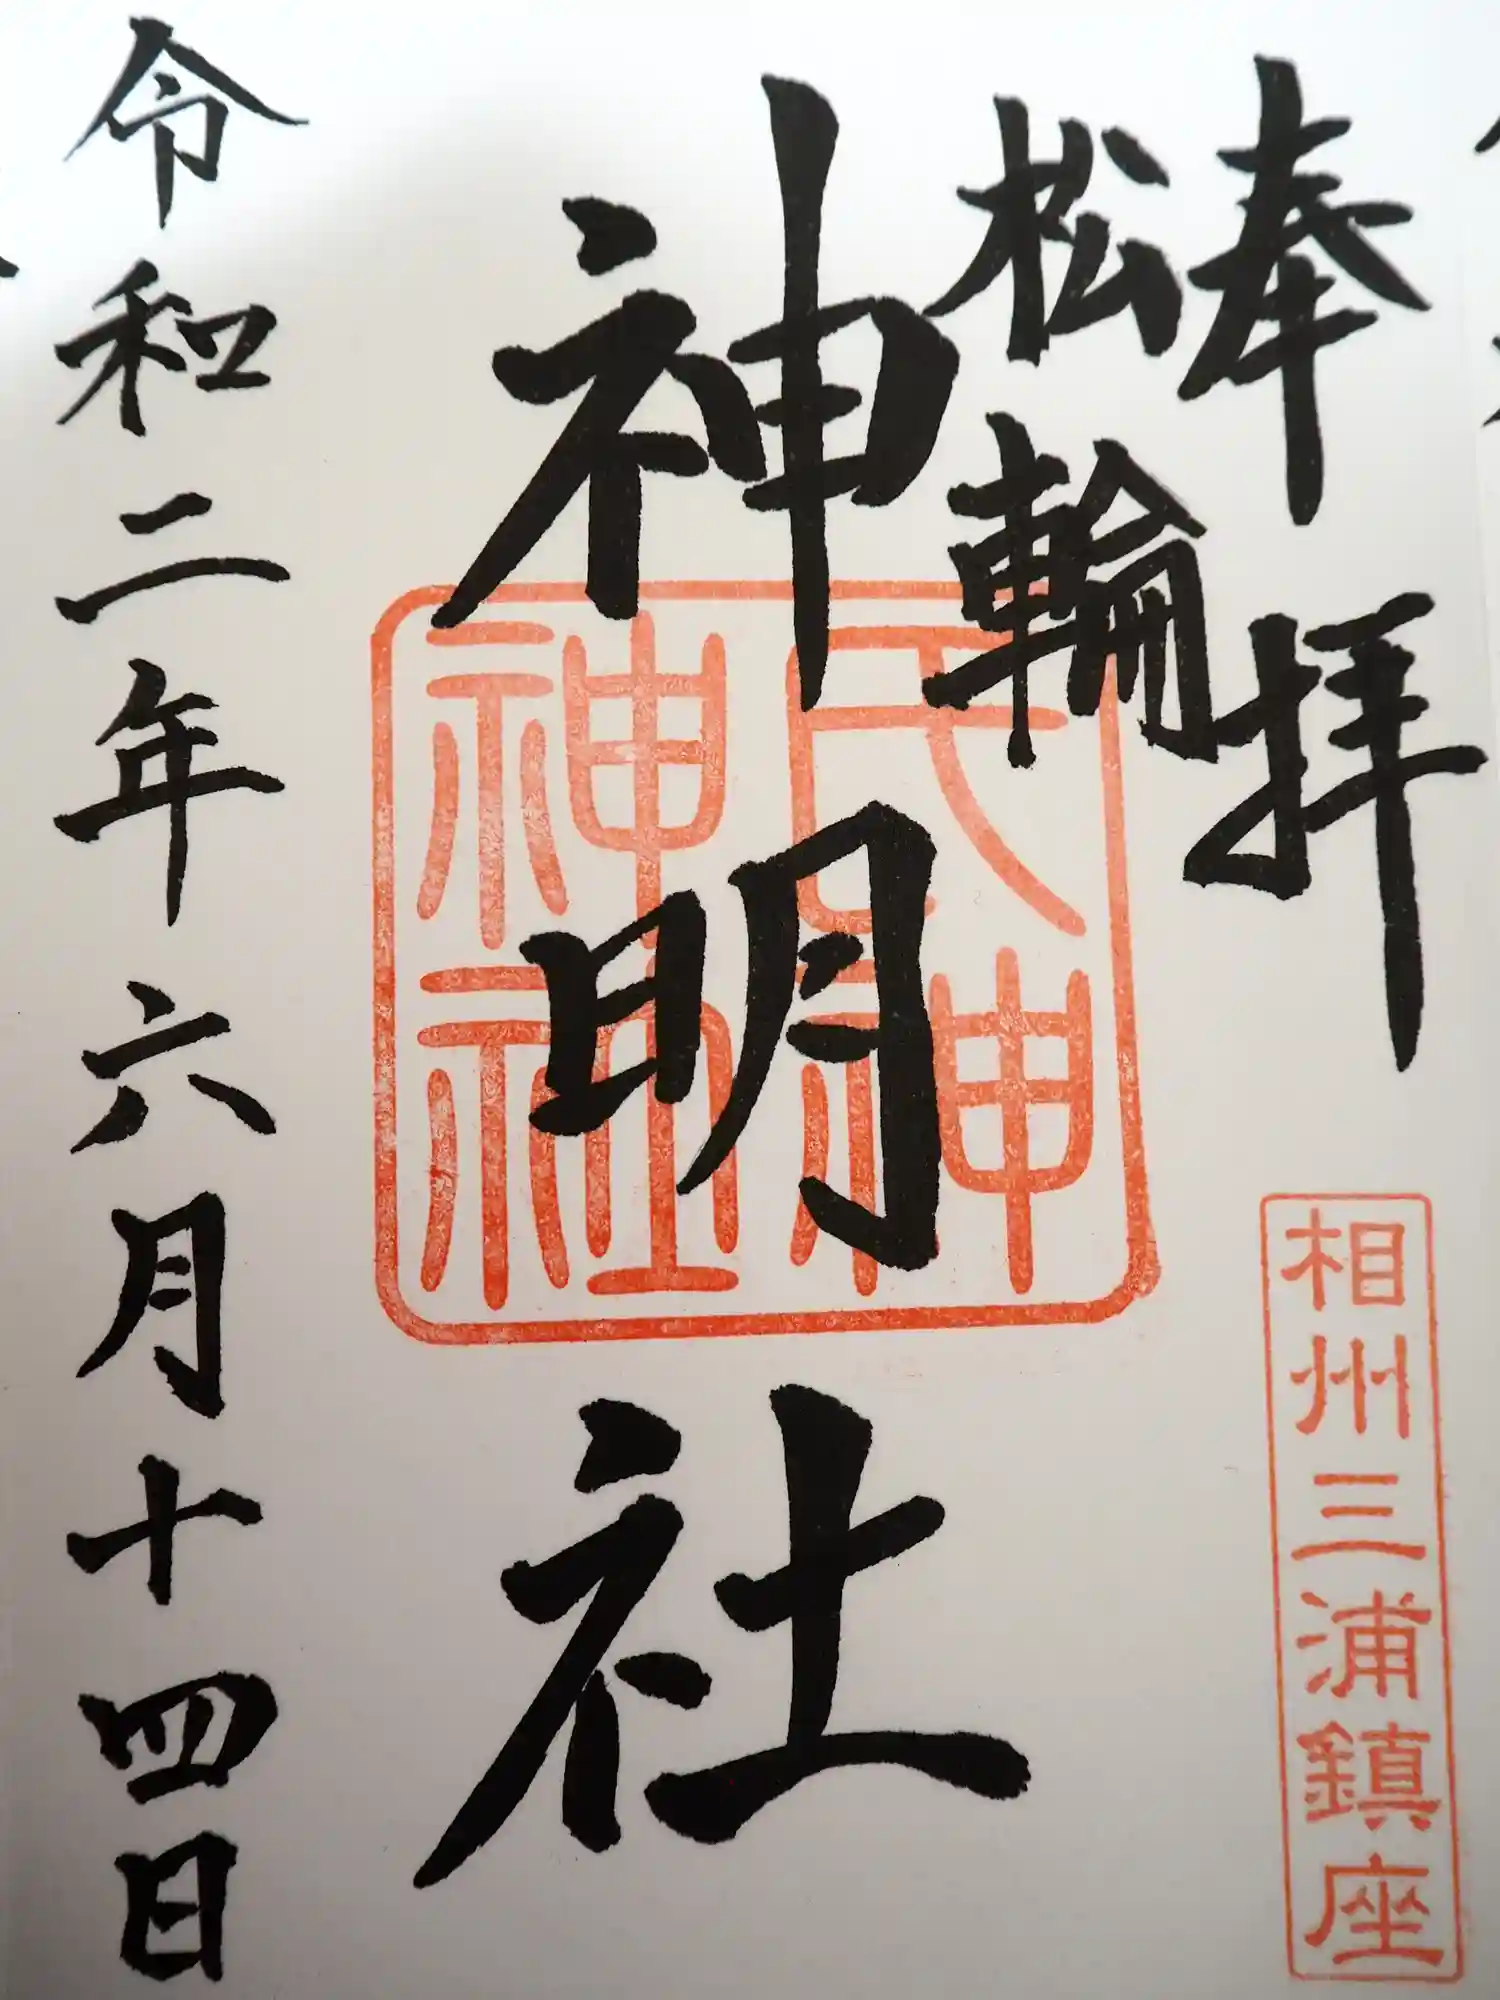 奉拝
相州三浦鎮座
松輪
神明社
氏神
神社
令和二年六月十四日